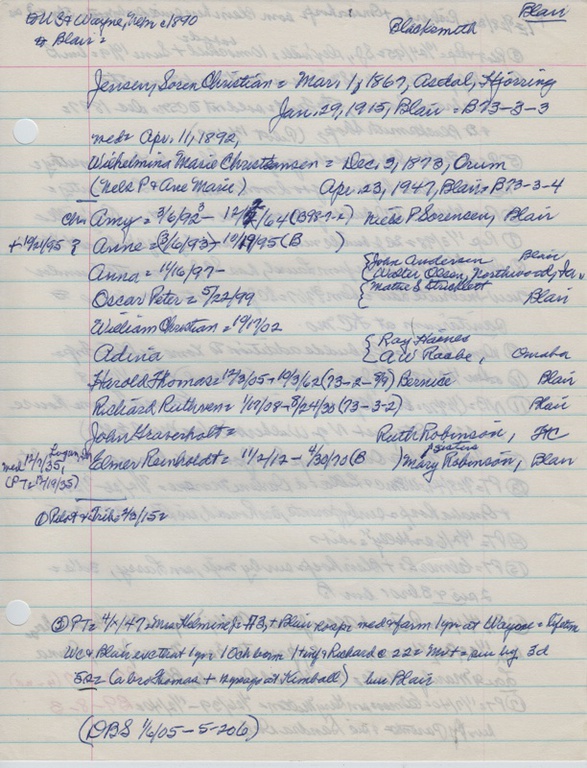 Blair
DU 54 Wayne, Nebr c1890
Blair =
Blacksmith
Jensen, Soren Christian = Mar. 1, 1867, Asdal, Hjorring
Jan. 29, 1915, Blair = B73-3-3
med = Apr. 11, 1892,
Wilhelmina Marie Christiansen = Dec. 3, 1873, Orum
(Nels P & Ane Marie) Apr. 23, 1947, Blair = B73-3-4
ch: Amy = 3/6/93 - 12/ /64 (B98-7-2) Niels P. Sorensen, Blair
+ 10/21/95 ? Anne = (3/6/93 - 10/19/95 (B )
Anna = 11/16/97 - { John Andersen Blair
Walter Olsen, Northwood, Ia
Oscar Peter = 5/22/99 { Mattie S Blair
William Christian = 10/17/02
Adina { Ray Haines
A W Raabe, Omaha
Harold Thomas = 12/3/05 + 10/3/62 (73-2- ) Bernice Blair
Richard Ruthven = 1/07/08 - 8/24/30 (73-3-2) Blair
John Graverholt = Ruth Robinson, FC
med 12/7/35 Logan, Elmer Reinholdt = 11/2/12 - 4/30/70 (B ) Mary Robinson, Blair
(PT = 12/19/35)
sisters
① Pilot & Trib = 2/3/15 =
③ PT = 4/ /47 = Mrs Helmine J = 73, + Blair med & farm 1 yr at Wayne =
WC & Blair exc that 1 yr = 10 ch born 1 & Richard @ 22 = = sur by 3d
5 s = (a bro Thomas + at Kimball) bur Blair
(DBS 1/6/05 - 5-206)